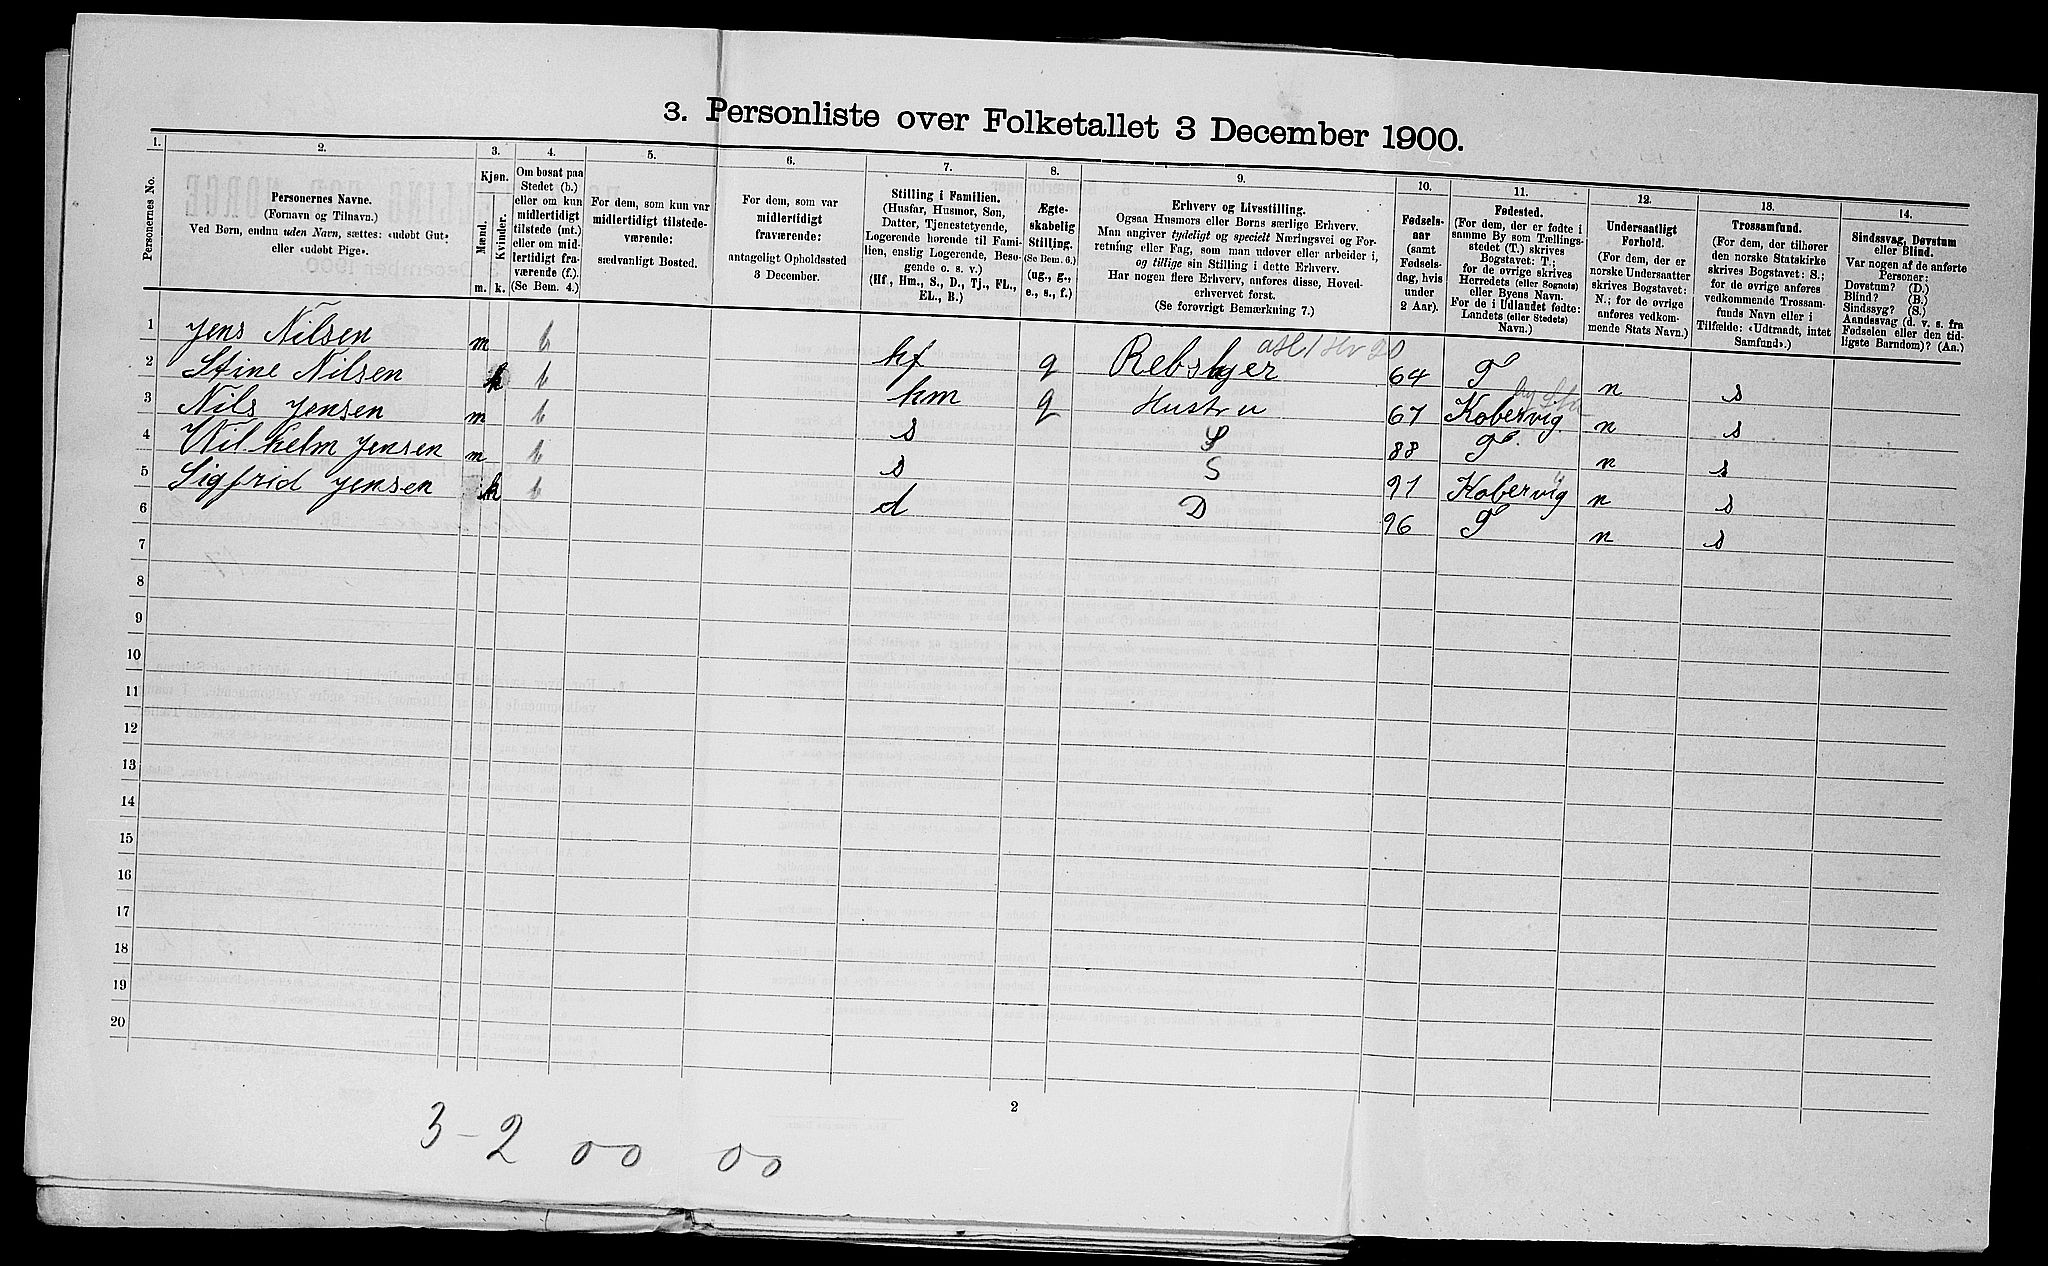 3. Personliste over Folketallet 3 December 1900.
1. 2. 3. 4. 5. 6. 7. 8. 9. 10. 11. 12. 13. 14.
Personernes No.
Personernes Navne.
(Fornavn og Tilnavn.)
Ved Børn, endnu uden Navn, sættes: «udøbt Gut»
eller «udøbt Pige».
Kjøn.
Mænd.
Kvinder.
m. k.
Om bosat paa
Stedet (b.)
eller om kun
midlertidigt
tilstede (mt.)
eller om mid-
lertidigt fra-
værende (f.).
(Se Bem. 4.)
For dem, som kun var
midlertidigt tilstede-
værende:
sædvanligt Bosted.
For dem, som var
midlertidigt
fraværende:
antageligt Opholdssted
3 December.
Stilling i Familien.
(Husfar, Husmor, Søn,
Datter, Tjenestetyende,
Logerende hørende til Fami-
lien, enslig Logerende, Besø-
gende o. s. v.)
(Hf., Hm., S., D., Tj., FL.,
EL., B.)
Ægte-
skabelig
Stilling.
(Se Bem. 6.)
(ug., g.,
e., s., f.)
Erhverv og Livsstilling.
Ogsaa Husmors eller Børns særlige Erhverv.
Man angiver tydeligt og specielt Næringsvei og For-
retning eller Fag, som man udøver eller arbeider i,
og tillige sin Stilling i dette Erhverv.
Har nogen flere Erhverv, anføres disse, Hoved-
erhvervet først.
(Se forøvrigt Bemærkning 7.)
Fødsels-
aar
(samt
Fødsels-
dag, hvis
under
2 Aar).
Fødested.
(For dem, der er fødte i
samme By som Tællings-
stedet (T.) skrives
Bogstavet: T.;
for de øvrige skrives
Herredets (eller Sognets)
eller Byens Navn.
For de i Udlandet fødte:
Landets (eller Stedets)
Navn.)
Undersaatligt
Forhold.
(For dem, der er
norske Undersaatter
skrives Bogstavet:
N.; for de øvrige
anføres vedkom-
mende Stats Navn.)
Trossamfund.
(For dem, der tilhører
den norske Statskirke
skrives Bogstavet: S.;
for de øvrige anføres
vedkommende Trossam-
funds Navn eller i
Tilfælde: «Udtraadt, intet
Samfund».)
Sindssvag, Døvstum
eller Blind.
Var nogen af de anførte
Personer:
Døvstum? (D.)
Blind? (B.)
Sindssyg? (S.)
Aandssvag (d. v. s. fra
Fødselen eller den tid-
ligste Barndom)? (Aa.)
1 Jens Nilsen m b hf g Rebslager 64 T n s
2 Stine Nilsen k b hm g Hustru 67 Kobervig n s
3 Nils Jensen m b s S 88 T n s
4 Wilhelm Jensen m b s S 91 Kobervig n s
5 Sigfrid Jensen k b d D 96 T n s
6
7
8
9
10
11
12
13
14
15
16
17
18
19
20
2
3 - 2 00 00